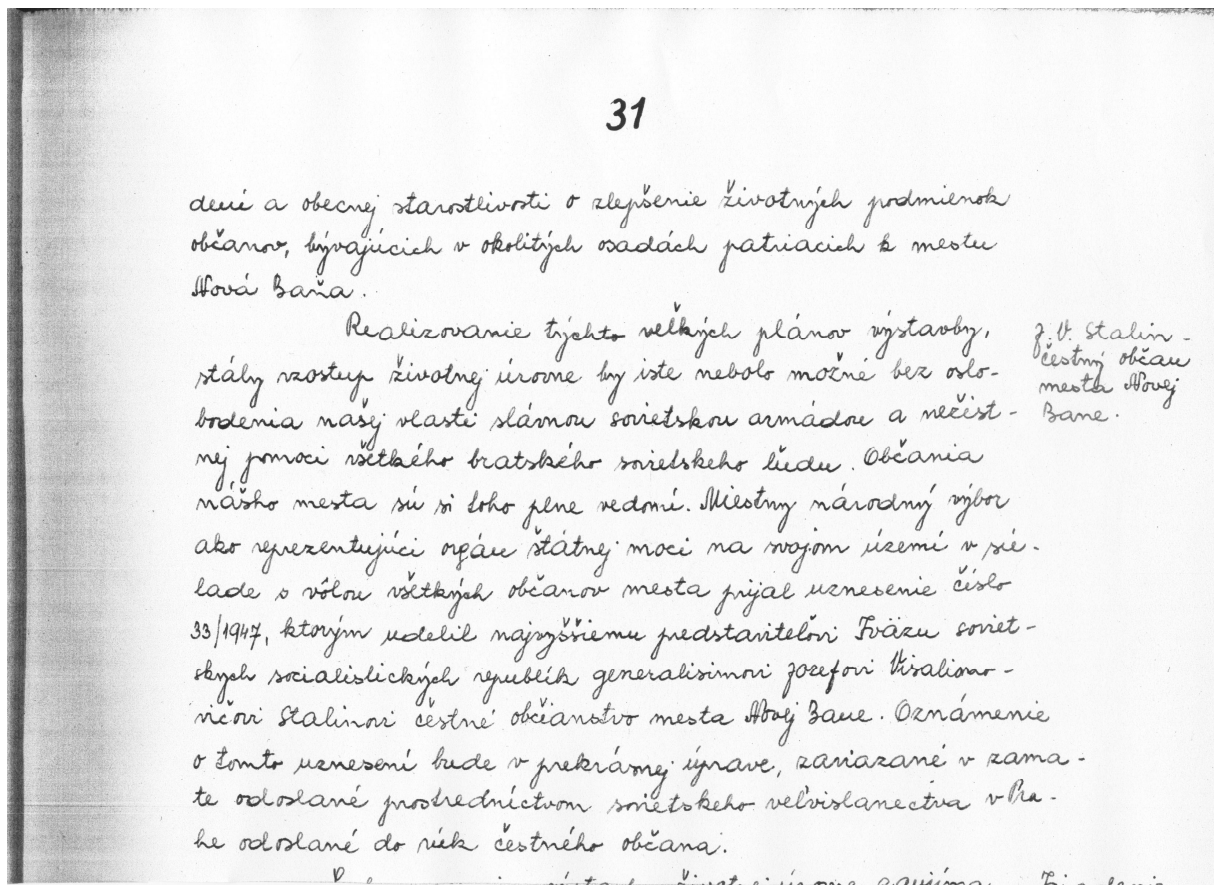 31
dení a obecnej starostlivosti o zlepšenie životných podmienok
občanov, bývajúcich v okolitých osadách patriacich k mestu
Nová Baňa.
Realizovanie týchto veľkých plánov výstavby,
stály vzostup životnej úrovne by iste nebolo možné bez oslo-
bodenia našej vlasti slávnou sovietskou armádou a nezišt-
nej pomoci všetkého bratského sovietskeho ľudu. Občania
nášho mesta sú si toho plne vedomí. Miestny národný výbor
ako reprezentujúci orgán štátnej moci na svojom území v sú-
lade s vôľou všetkých občanov mesta prijal uznesenie číslo
33/1947, ktorým udelil najvyššiemu predstaviteľovi Zväzu soviet-
skych socialistických republík generalisimovi Jozefovi Visaliono-
vičovi Stalinovi čestné občianstvo mesta Novej Bane. Oznámenie
o tomto uznesení bude v prekrásnej úprave, zaviazané v zama-
te odoslané prostredníctvom sovietskeho veľvislanectva v Pra-
he odoslané do rúk čestného občana.
J. V. Stalin -
čestný občan
mesta Novej
Bane.